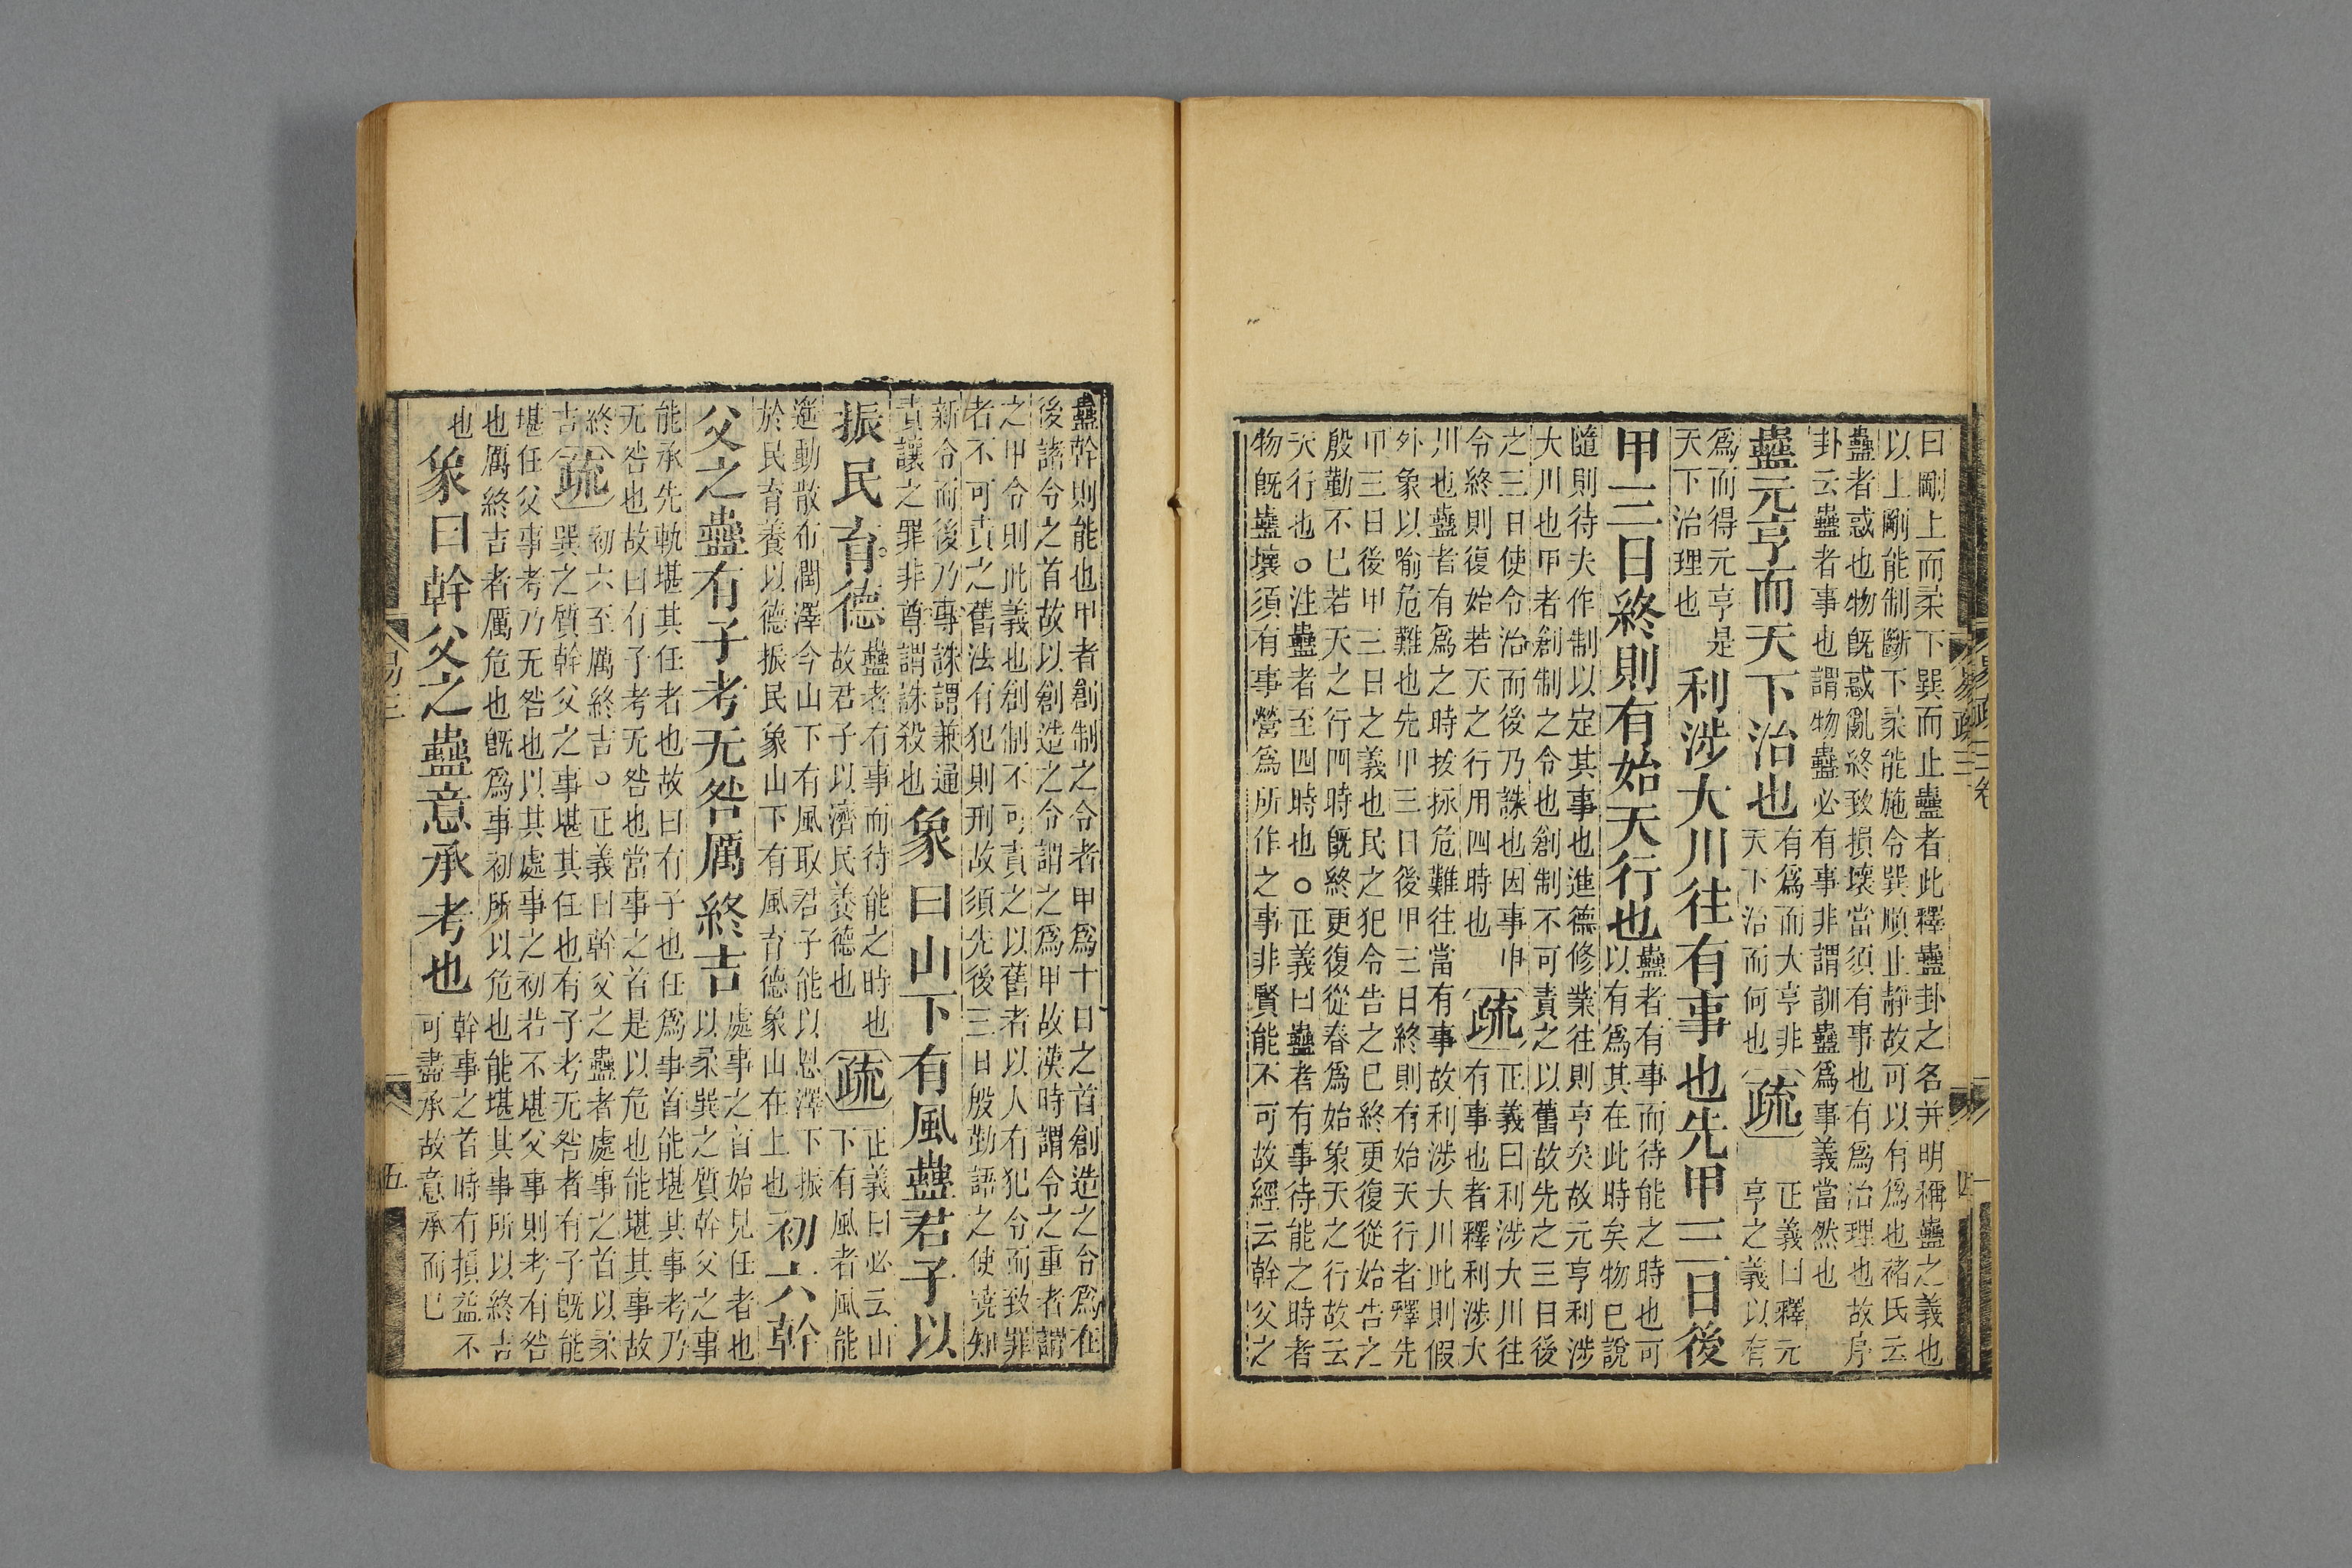 曰剛上而柔下巽而止蠱者此釋蠱卦之名并明稱蠱之義也
以上剛能制斷下柔能施令巽順止靜故可以有爲也褚氏云
蠱者惑也物旣惑亂終致損壞當須有事也有爲治理也故序
卦云蠱者事也謂物蠱必有事非謂訓蠱爲事義當然也
蠱元亨而天下治也
有爲而大亨非
天下治而何也
疏
正義曰釋元
亨之義以有
爲而得元亨是
天下治理也
利涉大川往有事也先甲三日後
甲三日終則有始天行也
蠱者有事而待能之時也可
以有爲其在此時矣物已說
隨則待夫作制以定其事也進德修業往則亨矣故元亨利涉
大川也甲者創制之令也創制不可責之以舊故先之三日後
之三日使令治而後乃誅也因事申
令終則復始若天之行用四時也
疏
正義曰利涉大川往
有事也者釋利涉大
川也蠱者有爲之時拔拯危難往當有事故利涉大川此則假
外象以喻危難也先甲三日後甲三日終則有始天行者釋先
甲三日後甲三日之義也民之犯令告之已終更復從始告之
殷勤不已若天之行四時旣終更復從春爲始象天之行故云
天行也○注蠱者至四時也○正義曰蠱者有事待能之時者
物旣蠱壞須有事營爲所作之事非賢能不可故經云幹父之
易疏三
四
蠱幹則能也甲者創制之令者甲爲十日之首創造之令爲在
後諸令之首故以創造之令謂之爲甲故漢時謂令之重者謂
之甲令則此義也創制不可責之以舊者以人有犯令而致罪
者不可責之舊法有犯則刑故須先後三日殷勤語之使曉知
新令而後乃專誅謂兼通
責讓之罪非尊謂誅殺也
象曰山下有風蠱君子以
振民育德
蠱者有事而待能之時也
故君子以濟民養德也
疏
正義曰必云山
下有風者風能
遙動散布潤澤今山下有風取君子能以恩澤下振
於民育養以德振民象山下有風育德象山在上也
初六幹
父之蠱有子考无咎厲終吉
處事之首始見任者也
以柔巽之質幹父之事
能承先軌堪其任者也故曰有子也任爲事首能堪其事考乃
无咎也故曰有子考无咎也當事之首是以危也能堪其事故
終
吉
疏
初六至厲終吉○正義曰幹父之蠱者處事之首以柔
巽之質幹父之事堪其任也有子考无咎者有子旣能
堪任父事考乃无咎也以其處事之初若不堪父事則考有咎
也厲終吉者厲危也旣爲事初所以危也能堪其事所以終吉
也
象曰幹父之蠱意承考也
幹事之首時有損益不
可盡承故意承而已
易三
五